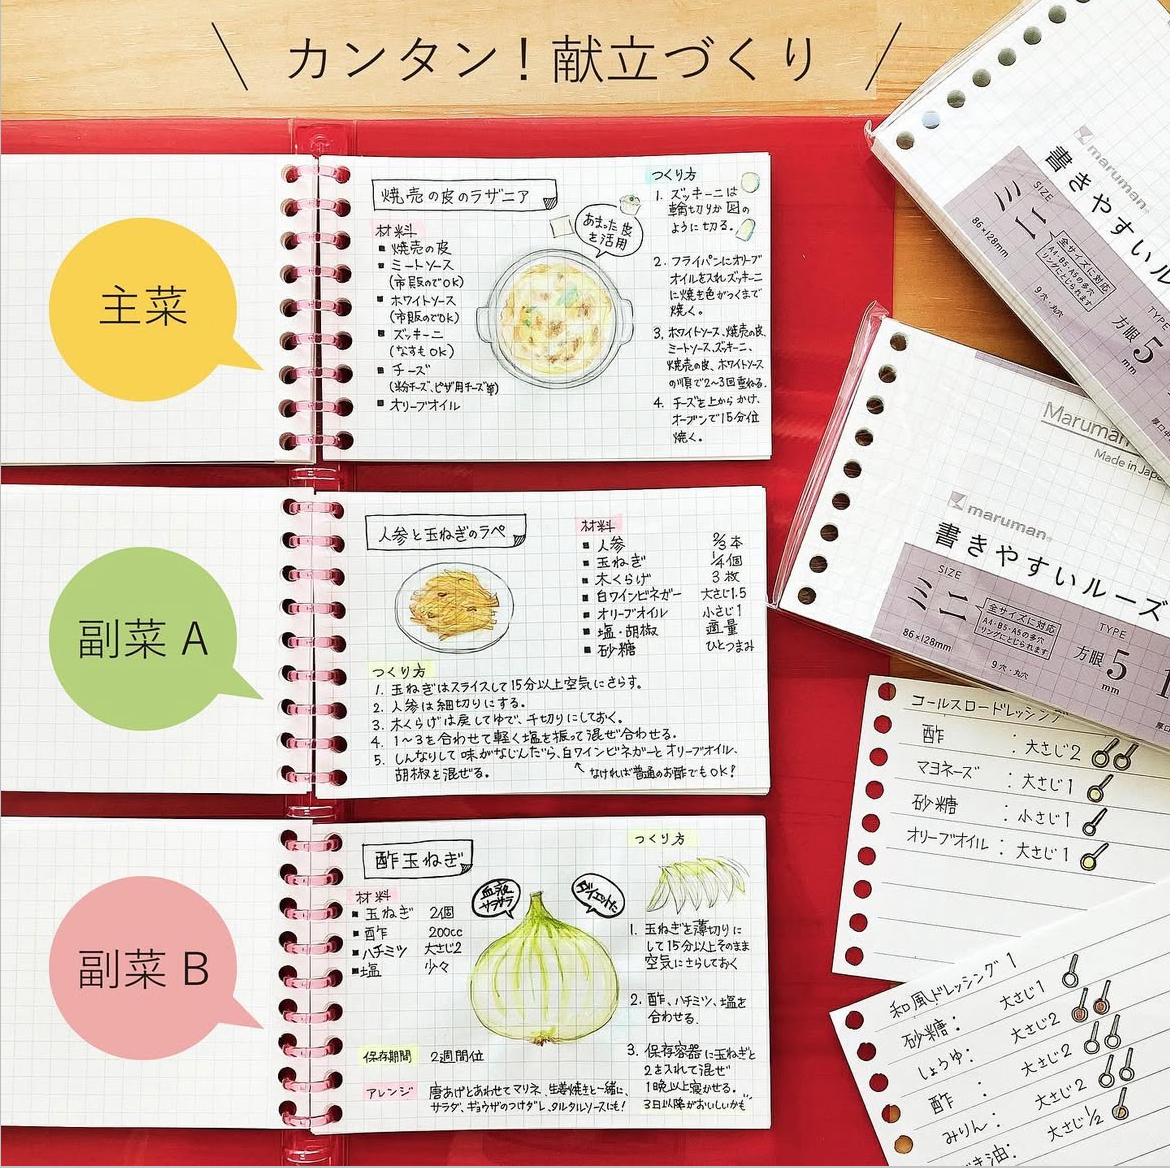 カンタン！献立づくり
主菜
焼売の皮のラザニア
材料
焼売の皮
ミートソース
(市販のでOK)
ホワイトソース
(市販のでOK)
ズッキーニ
(なすもOK)
チーズ
(粉チーズ、ピザ用チーズ等)
オリーブオイル
あまった皮
を活用
つくり方
1. ズッキーニは
輪切りか図の
ように切る。
2. フライパンにオリーブ
オイルを入れズッキーニ
に焼き色がつくまで
焼く。
3. ホワイトソース、焼売の皮、
ミートソース、ズッキーニ、
焼売の皮、ホワイトソース
の順で2~3回重ねる。
4. チーズを上からかけ、
オーブンで15分位
焼く。
副菜 A
人参と玉ねぎのラペ
材料
人参 2/3本
玉ねぎ 1/4個
木くらげ 3枚
白ワインビネガー 大さじ1.5
オリーブオイル 小さじ1
塩・胡椒 適量
砂糖 ひとつまみ
つくり方
1. 玉ねぎはスライスして15分以上空気にさらす。
2. 人参は細切りにする。
3. 木くらげは戻してゆで、千切りにしておく。
4. 1~3を合わせて軽く塩を振って混ぜ合わせる。
5. しんなりして味がなじんだら、白ワインビネガーとオリーブオイル、
胡椒を混ぜる。
なければ普通のお酢でもOK!
副菜 B
酢玉ねぎ
材料
玉ねぎ 2個
酢 200cc
ハチミツ 大さじ2
塩 少々
血液
サラサラ
ダイエットに
つくり方
1. 玉ねぎを薄切りに
して15分以上そのまま
空気にさらしておく
2. 酢、ハチミツ、塩を
合わせる。
3. 保存容器に玉ねぎと
2を入れて混ぜ
1晩以上寝かせる。
3日以降がおいしいかも
保存期間 2週間位
アレンジ 唐あげとあわせてマリネ、生姜焼きと一緒に、
サラダ、ギョウザのつけダレ、タルタルソースにも!
maruman
書きやすいル
SIZE
ミニ
86×128mm
全サイズに対応
A4・B5・A5の多穴
リングにとじられます
9穴・丸穴
TYPE
方眼5
mm
Maruman
Made in Japa
maruman
書きやすいルーズ
SIZE
ミニ
86×128mm
全サイズに対応
A4・B5・A5の多穴
リングにとじられます
9穴・丸穴
TYPE
方眼5
mm
コールスロードレッシング
酢 : 大さじ2
マヨネーズ : 大さじ1
砂糖 : 小さじ1
オリーブオイル : 大さじ1
和風ドレッシング1
砂糖: 大さじ1
しょうゆ: 大さじ2
酢 : 大さじ2
みりん: 大さじ2
油: 大さじ1/2